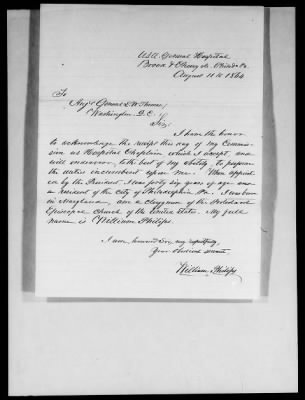 U.S.A. General Hospital
Broad & Cherry Sts Philad. Pa.
August 11th 1864
To
Adj't General L. Thomas,
Washington D.C.
Sir,
I have the honor
to acknowledge the receipt this day of my Commis-
sion as Hospital Chaplain which I accept and
will endeavor, to the best of my ability, to perform
the duties incumbent upon me. When appoint-
ed by the President I was forty six years of age and
a resident of the City of Philadelphia Pa. I was born
in Maryland, am a Clergyman of the Protestant
Episcopal Church of the United States. My full
name is William Philips.
I am, Sir, very respectfully,
Your obedient servant
William Philips